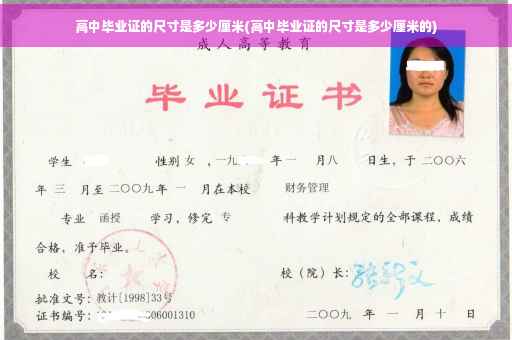 高中毕业证的尺寸是多少厘米(高中毕业证的尺寸是多少厘米的)
成人高等教育
毕业证书
学生 性别 女 ，一九 年 一 月 八 日生，于 二〇〇六
年 三 月至 二〇〇九 年 一 月在本校 财务管理
专业 函授 学习，修完 专 科教学计划规定的全部课程，成绩
合格，准予毕业。
校 名： 校（院）长：
批准文号：教计[1998]33号
证书编号： 06001310 二〇〇九 年 一 月 十 日